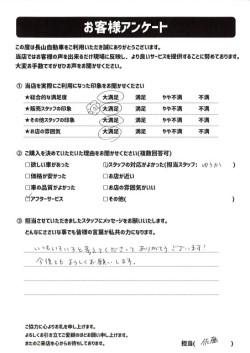 お客様アンケート
この度は長山自動車をご利用いただき誠にありがとうございます。
当店ではお客様の声を出来るだけ現場に反映し、より良いサービスを提供することに努めております。
大変お手数ですがぜひお声をお聞かせください。
① 当店を実際にご利用になった印象をお聞かせください
★総合的な満足度 大満足 満足 やや不満 不満
★販売スタッフの印象 大満足 満足 やや不満 不満
★その他スタッフの印象 大満足 満足 やや不満 不満
★お店の雰囲気 大満足 満足 やや不満 不満
② ご購入を決めていただいた理由をお聞かせください(複数回答可)
□欲しい車があった ☑スタッフの対応がよかった(担当スタッフ: )
□価格が安かった □お店が近い
□車の品質がよかった □お店の雰囲気がいい
☑アフターサービス □その他( )
③ 担当させていただきましたスタッフにメッセージをお願いいたします。
どんなにささいな事でも皆様の言葉が私共の力になります。
いろいろと考えてくださってありがとうございます!
今後ともよろしくお願いします。
ご協力に心よりお礼を申し上げます。
よろしく引き立てご愛顧のほどお願い申し上げます。
またのご来店を心からお待ちしております。
担当( 佐藤 )